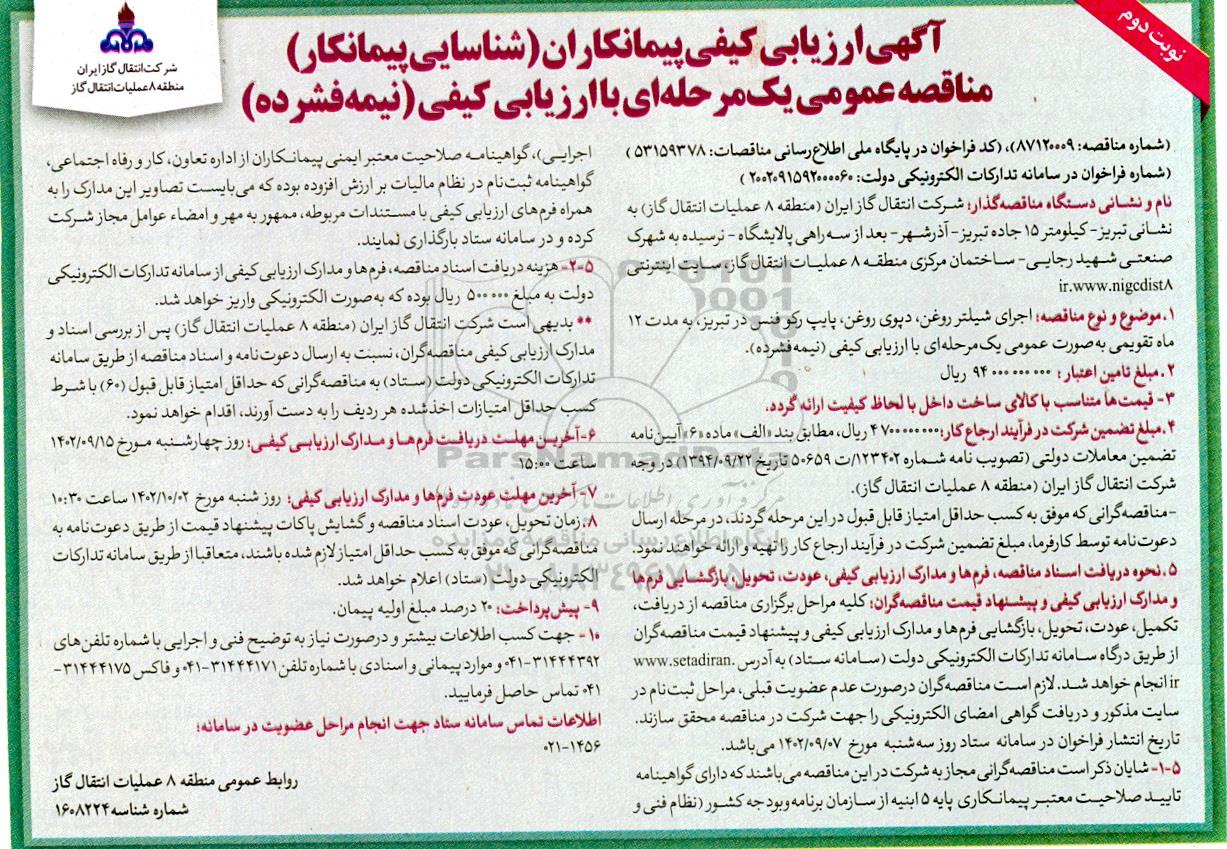 نوبت دوم
شرکت انتقال گاز ایران
منطقه ۸ عملیات انتقال گاز
آگهی ارزیابی کیفی پیمانکاران (شناسایی پیمانکار)
مناقصه عمومی یک‌مرحله‌ای با ارزیابی کیفی (نیمه‌فشرده)
(شماره مناقصه: ۸۷۱۲۰۰۰۹)، (کد فراخوان در پایگاه ملی اطلاع‌رسانی مناقصات: ۵۳۱۵۹۳۷۸ )
(شماره فراخوان در سامانه تدارکات الکترونیکی دولت: ۲۰۰۲۰۹۱۵۹۲۰۰۰۰۶۰ )
نام و نشانی دستگاه مناقصه‌گذار: شرکت انتقال گاز ایران (منطقه ۸ عملیات انتقال گاز) به
نشانی تبریز- کیلومتر ۱۵ جاده تبریز- آذرشهر- بعد از سه‌راهی پالایشگاه - نرسیده به شهرک
صنعتی شهید رجایی- ساختمان مرکزی منطقه ۸ عملیات انتقال گاز، سایت اینترنتی
ir.www.nigcdist۸
۱. موضوع و نوع مناقصه: اجرای شیلتر روغن، دپوی روغن، پایپ رکو فنس در تبریز، به مدت ۱۲
ماه تقویمی به‌صورت عمومی یک‌مرحله‌ای با ارزیابی کیفی (نیمه‌فشرده).
۲. مبلغ تامین اعتبار : ۹۴ ۰۰۰ ۰۰۰ ۰۰۰ ریال
۳- قیمت‌ها متناسب با کالای ساخت داخل با لحاظ کیفیت ارائه گردد.
۴. مبلغ تضمین شرکت در فرآیند ارجاع کار: ۴ ۷۰۰ ۰۰۰ ۰۰۰ ریال، مطابق بند «الف» ماده «۶» آیین‌نامه
تضمین معاملات دولتی (تصویب نامه شماره ۱۲۳۴۰۲/ت ۵۰۶۵۹ تاریخ ۱۳۹۴/۰۹/۲۲) در وجه
شرکت انتقال گاز ایران (منطقه ۸ عملیات انتقال گاز).
-مناقصه‌گرانی که موفق به کسب حداقل امتیاز قابل قبول در این مرحله گردند، در مرحله ارسال
دعوت‌نامه توسط کارفرما، مبلغ تضمین شرکت در فرآیند ارجاع کار را تهیه و ارائه خواهند نمود.
۵. نحوه دریافت اسناد مناقصه، فرم‌ها و مدارک ارزیابی کیفی، عودت، تحویل، بازگشایی فرم‌ها
و مدارک ارزیابی کیفی و پیشنهاد قیمت مناقصه‌گران: کلیه مراحل برگزاری مناقصه از دریافت،
تکمیل، عودت، تحویل، بازگشایی فرم‌ها و مدارک ارزیابی کیفی و پیشنهاد قیمت مناقصه‌گران
از طریق درگاه سامانه تدارکات الکترونیکی دولت (سامانه ستاد) به آدرس www.setadiran.
ir انجام خواهد شد. لازم است مناقصه‌گران درصورت عدم عضویت قبلی، مراحل ثبت‌نام در
سایت مذکور و دریافت گواهی امضای الکترونیکی را جهت شرکت در مناقصه محقق سازند.
تاریخ انتشار فراخوان در سامانه ستاد روز سه‌شنبه مورخ ۱۴۰۲/۰۹/۰۷ می‌باشد.
۵-۱- شایان ذکر است مناقصه‌گرانی مجاز به شرکت در این مناقصه می‌باشند که دارای گواهینامه
تایید صلاحیت معتبر پیمانکاری پایه ۵ ابنیه از سازمان برنامه‌وبودجه کشور (نظام فنی و
اجرایی)، گواهینامه صلاحیت معتبر ایمنی پیمانکاران از اداره تعاون، کار و رفاه اجتماعی،
گواهینامه ثبت‌نام در نظام مالیات بر ارزش افزوده بوده که می‌بایست تصاویر این مدارک را به
همراه فرم‌های ارزیابی کیفی با مستندات مربوطه، ممهور به مهر و امضاء عوامل مجاز شرکت
کرده و در سامانه ستاد بارگذاری نمایند.
۵-۲- هزینه دریافت اسناد مناقصه، فرم‌ها و مدارک ارزیابی کیفی از سامانه تدارکات الکترونیکی
دولت به مبلغ ۵۰۰ ۰۰۰ ریال بوده که به‌صورت الکترونیکی واریز خواهد شد.
** بدیهی است شرکت انتقال گاز ایران (منطقه ۸ عملیات انتقال گاز) پس از بررسی اسناد و
مدارک ارزیابی کیفی مناقصه‌گران، نسبت به ارسال دعوت‌نامه و اسناد مناقصه از طریق سامانه
تدارکات الکترونیکی دولت (ستاد) به مناقصه‌گرانی که حداقل امتیاز قابل قبول (۶۰) با شرط
کسب حداقل امتیازات اخذشده هر ردیف را به دست آورند، اقدام خواهد نمود.
۶- آخرین مهلت دریافت فرم‌ها و مدارک ارزیابی کیفی: روز چهارشنبه مورخ ۱۴۰۲/۰۹/۱۵
ساعت ۱۵:۰۰
۷- آخرین مهلت عودت فرم‌ها و مدارک ارزیابی کیفی: روز شنبه مورخ ۱۴۰۲/۱۰/۰۲ ساعت ۱۰:۳۰
۸. زمان تحویل، عودت اسناد مناقصه و گشایش پاکات پیشنهاد قیمت از طریق دعوت‌نامه به
مناقصه‌گرانی که موفق به کسب حداقل امتیاز لازم شده باشند، متعاقبا از طریق سامانه تدارکات
الکترونیکی دولت (ستاد) اعلام خواهد شد.
۹- پیش‌پرداخت: ۲۰ درصد مبلغ اولیه پیمان.
۱۰- جهت کسب اطلاعات بیشتر و درصورت نیاز به توضیح فنی و اجرایی با شماره تلفن‌های
۰۴۱-۳۱۴۴۴۳۹۲ و موارد پیمانی و اسنادی با شماره تلفن ۰۴۱-۳۱۴۴۴۱۷۱ و فاکس ۳۱۴۴۴۱۷۵-
۰۴۱ تماس حاصل فرمایید.
اطلاعات تماس سامانه ستاد جهت انجام مراحل عضویت در سامانه:
۰۲۱-۱۴۵۶
روابط عمومی منطقه ۸ عملیات انتقال گاز
شماره شناسه ۱۶۰۸۲۲۴
ParsNamadData
پایگاه اطلاع رسانی مناقصه و مزایده
۰۲۱-۸۸۳۴۹۶۷۰-۵